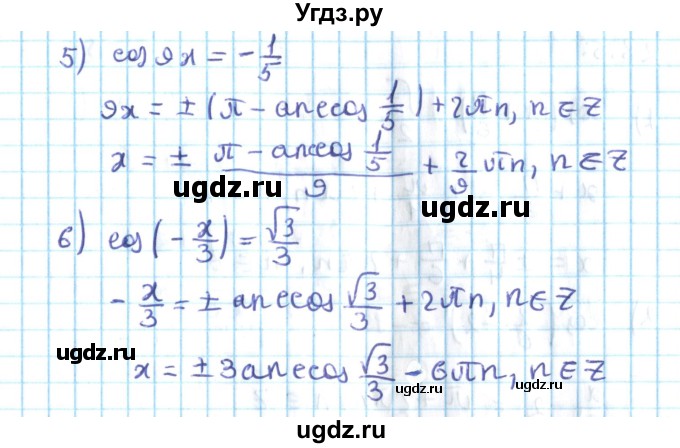 Угдз.ру
5) cos 9x = -1/5
9x = ±(π - arccos 1/5) + 2πn, n ∈ Z
x = ± (π - arccos 1/5)/9 + 2/9 πn, n ∈ Z
ugdz.ru
ugdz.ru
ugdz.ru
6) cos(-x/3) = √3/3
-x/3 = ± arccos √3/3 + 2πn, n ∈ Z
ugdz.ru
ugdz.ru
x = ± 3 arccos √3/3 - 6πn, n ∈ Z
ugdz.ru
ugdz.ru